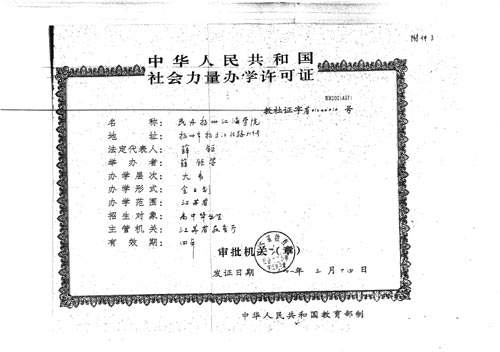 附件3
中华人民共和国
社会力量办学许可证
教社证字 号
名称：民办扬州江海学院
地址：扬州市
法定代表人：薛
举办者：薛
办学层次：大专
办学形式：全日制
办学范围：江苏省
招生对象：高中毕业生
主管机关：江苏省教育厅
有效期：四年
审批机关（章）
发证日期 年 月 十四日
中华人民共和国教育部制